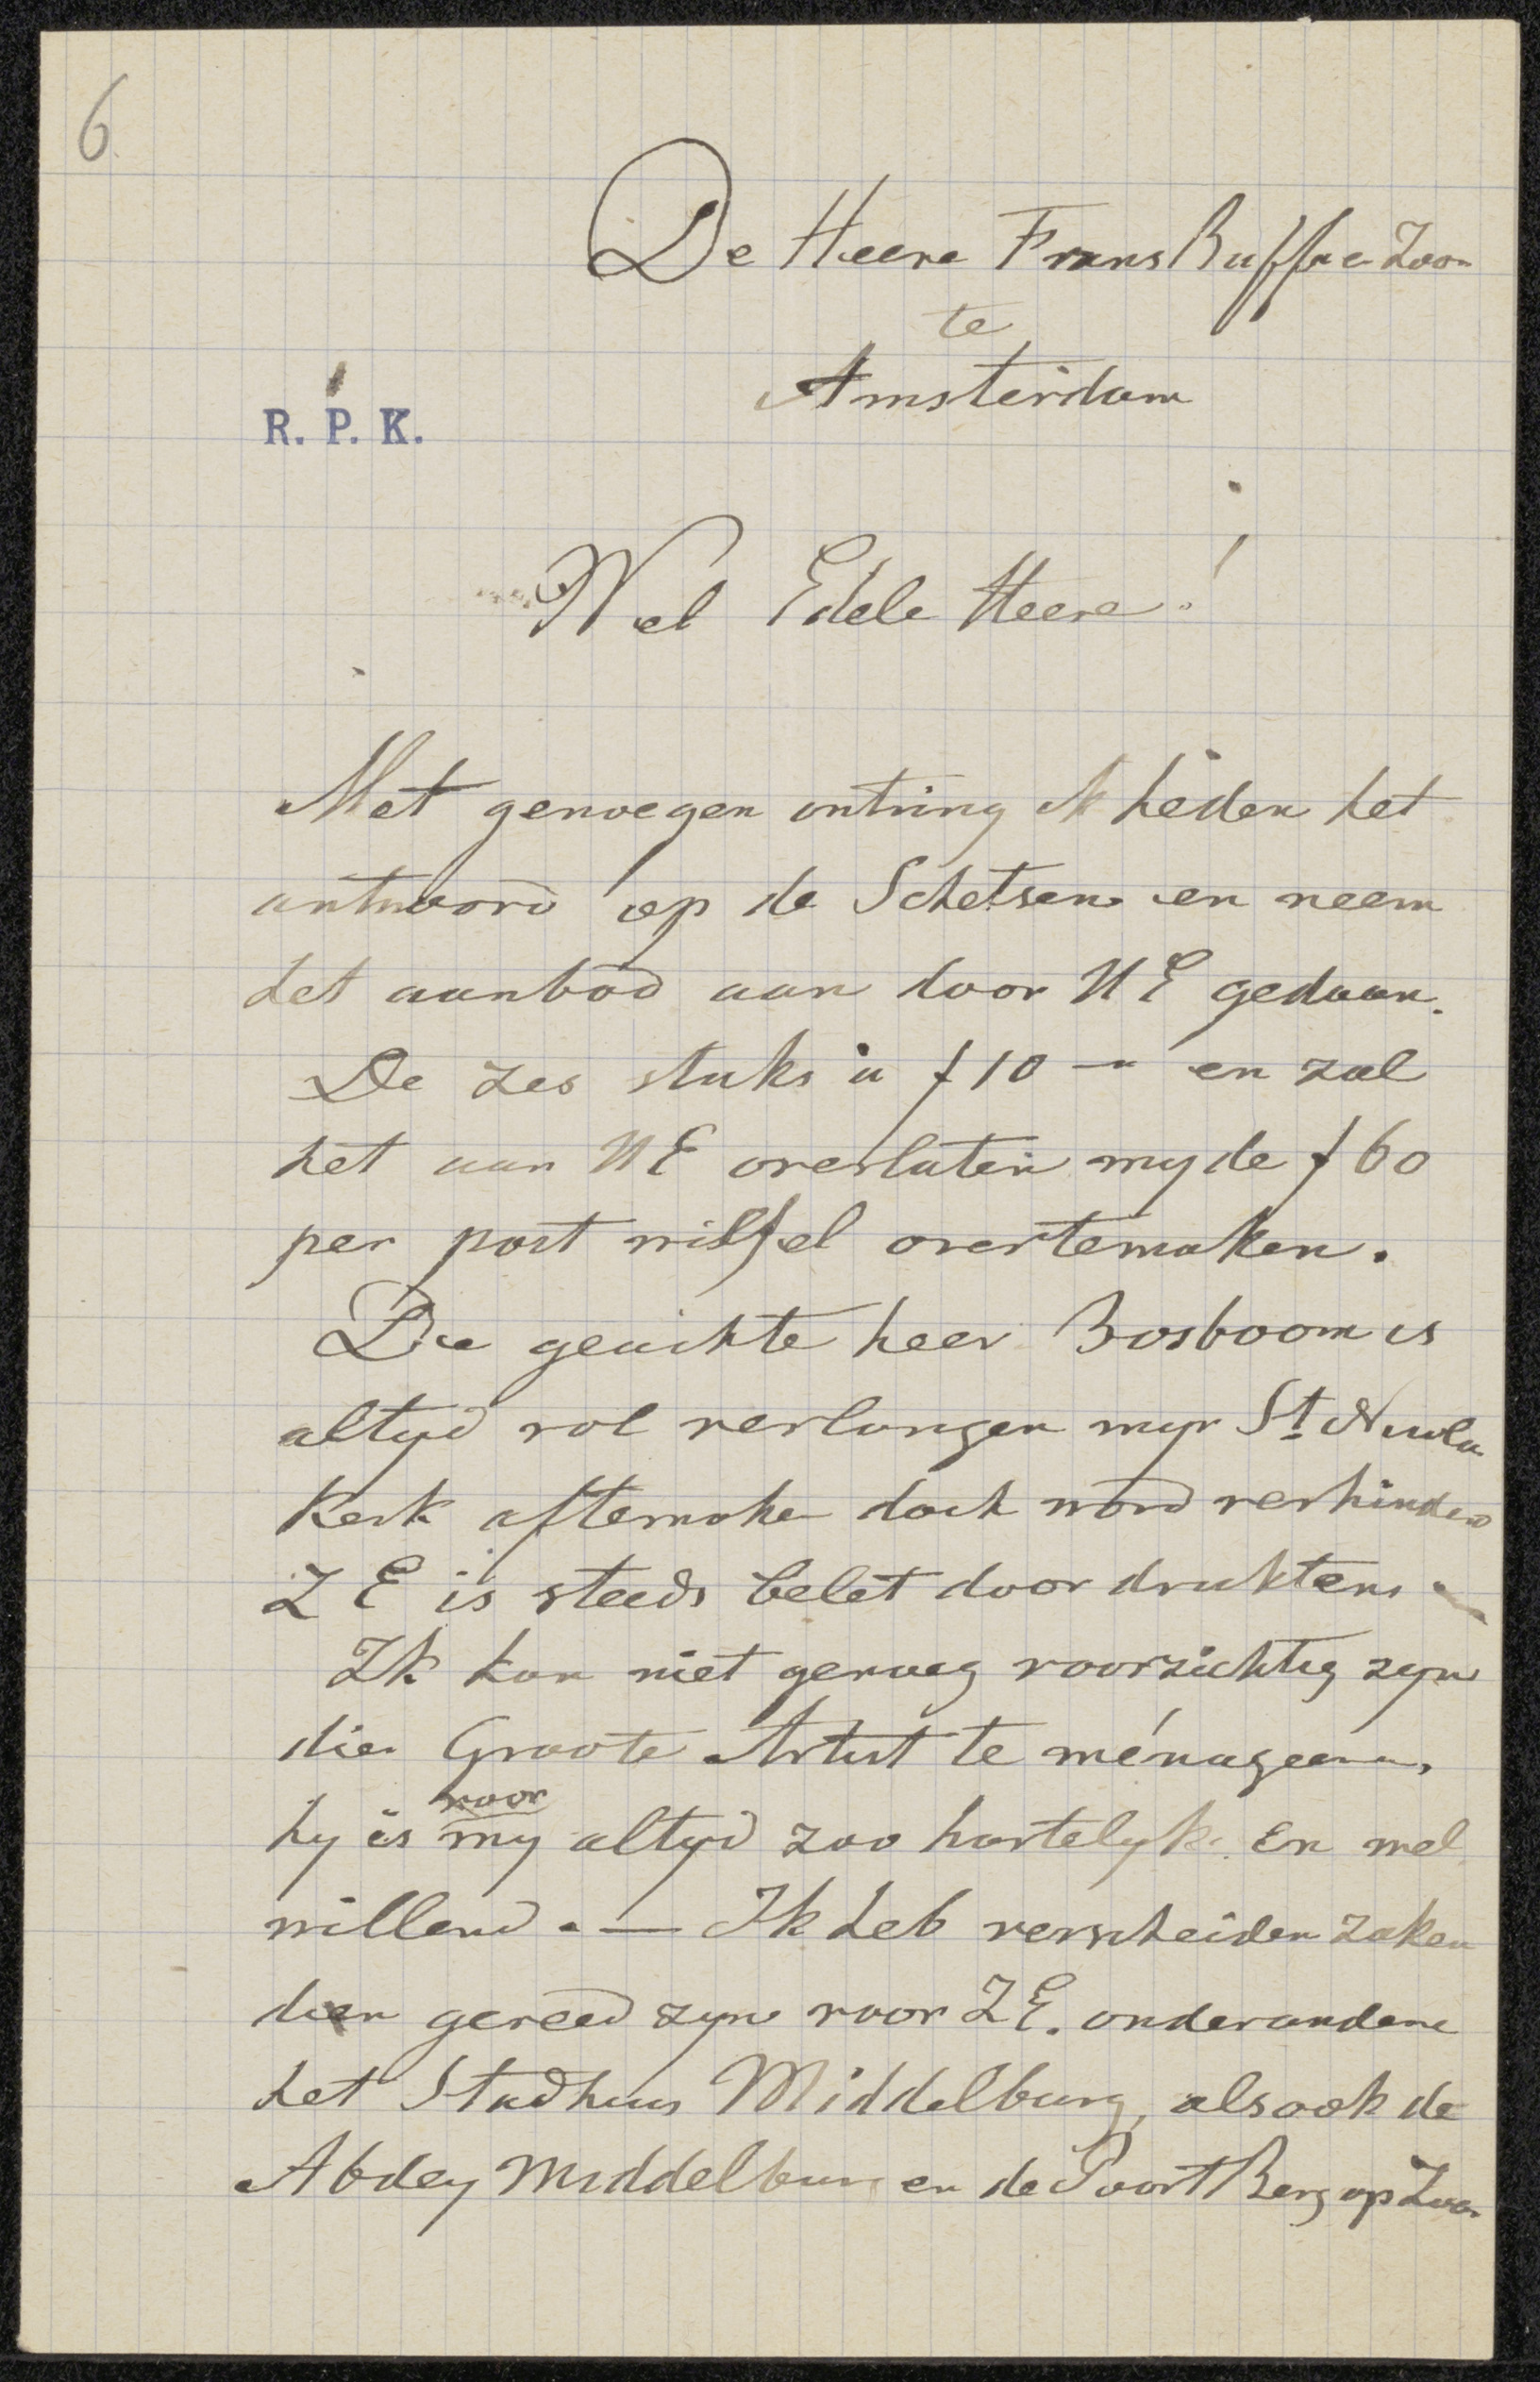 6
De Heere Frans Buffa en Zoon
te
Amsterdam
R. P. K.
Wel Edele Heere!
Met genoegen ontving ik heden het
antwoord op de Schetsen en neem
het aanbod aan door UE gedaan.
De zes stuks à f 10 — en zal
het aan UE overlaten my de f 60
per post wissel overtemaken.
De geachte heer Bosboom is
altyd vol verlangen myn St. Nicola
Kerk aftemaken doch word verhinderd
ZE is steeds belet door druktens
Ik kan niet genoeg voorzichtig zyn
die Groote Artist te ménageeren,
hy is voor my altyd zoo hartelyk en wel
willend. — Ik heb verscheiden zaken
die gereed zyn voor ZE. onderandere
het Stadhuis Middelburg, alsook de
Abdey Middelburg en de Poort Berg op Zoom